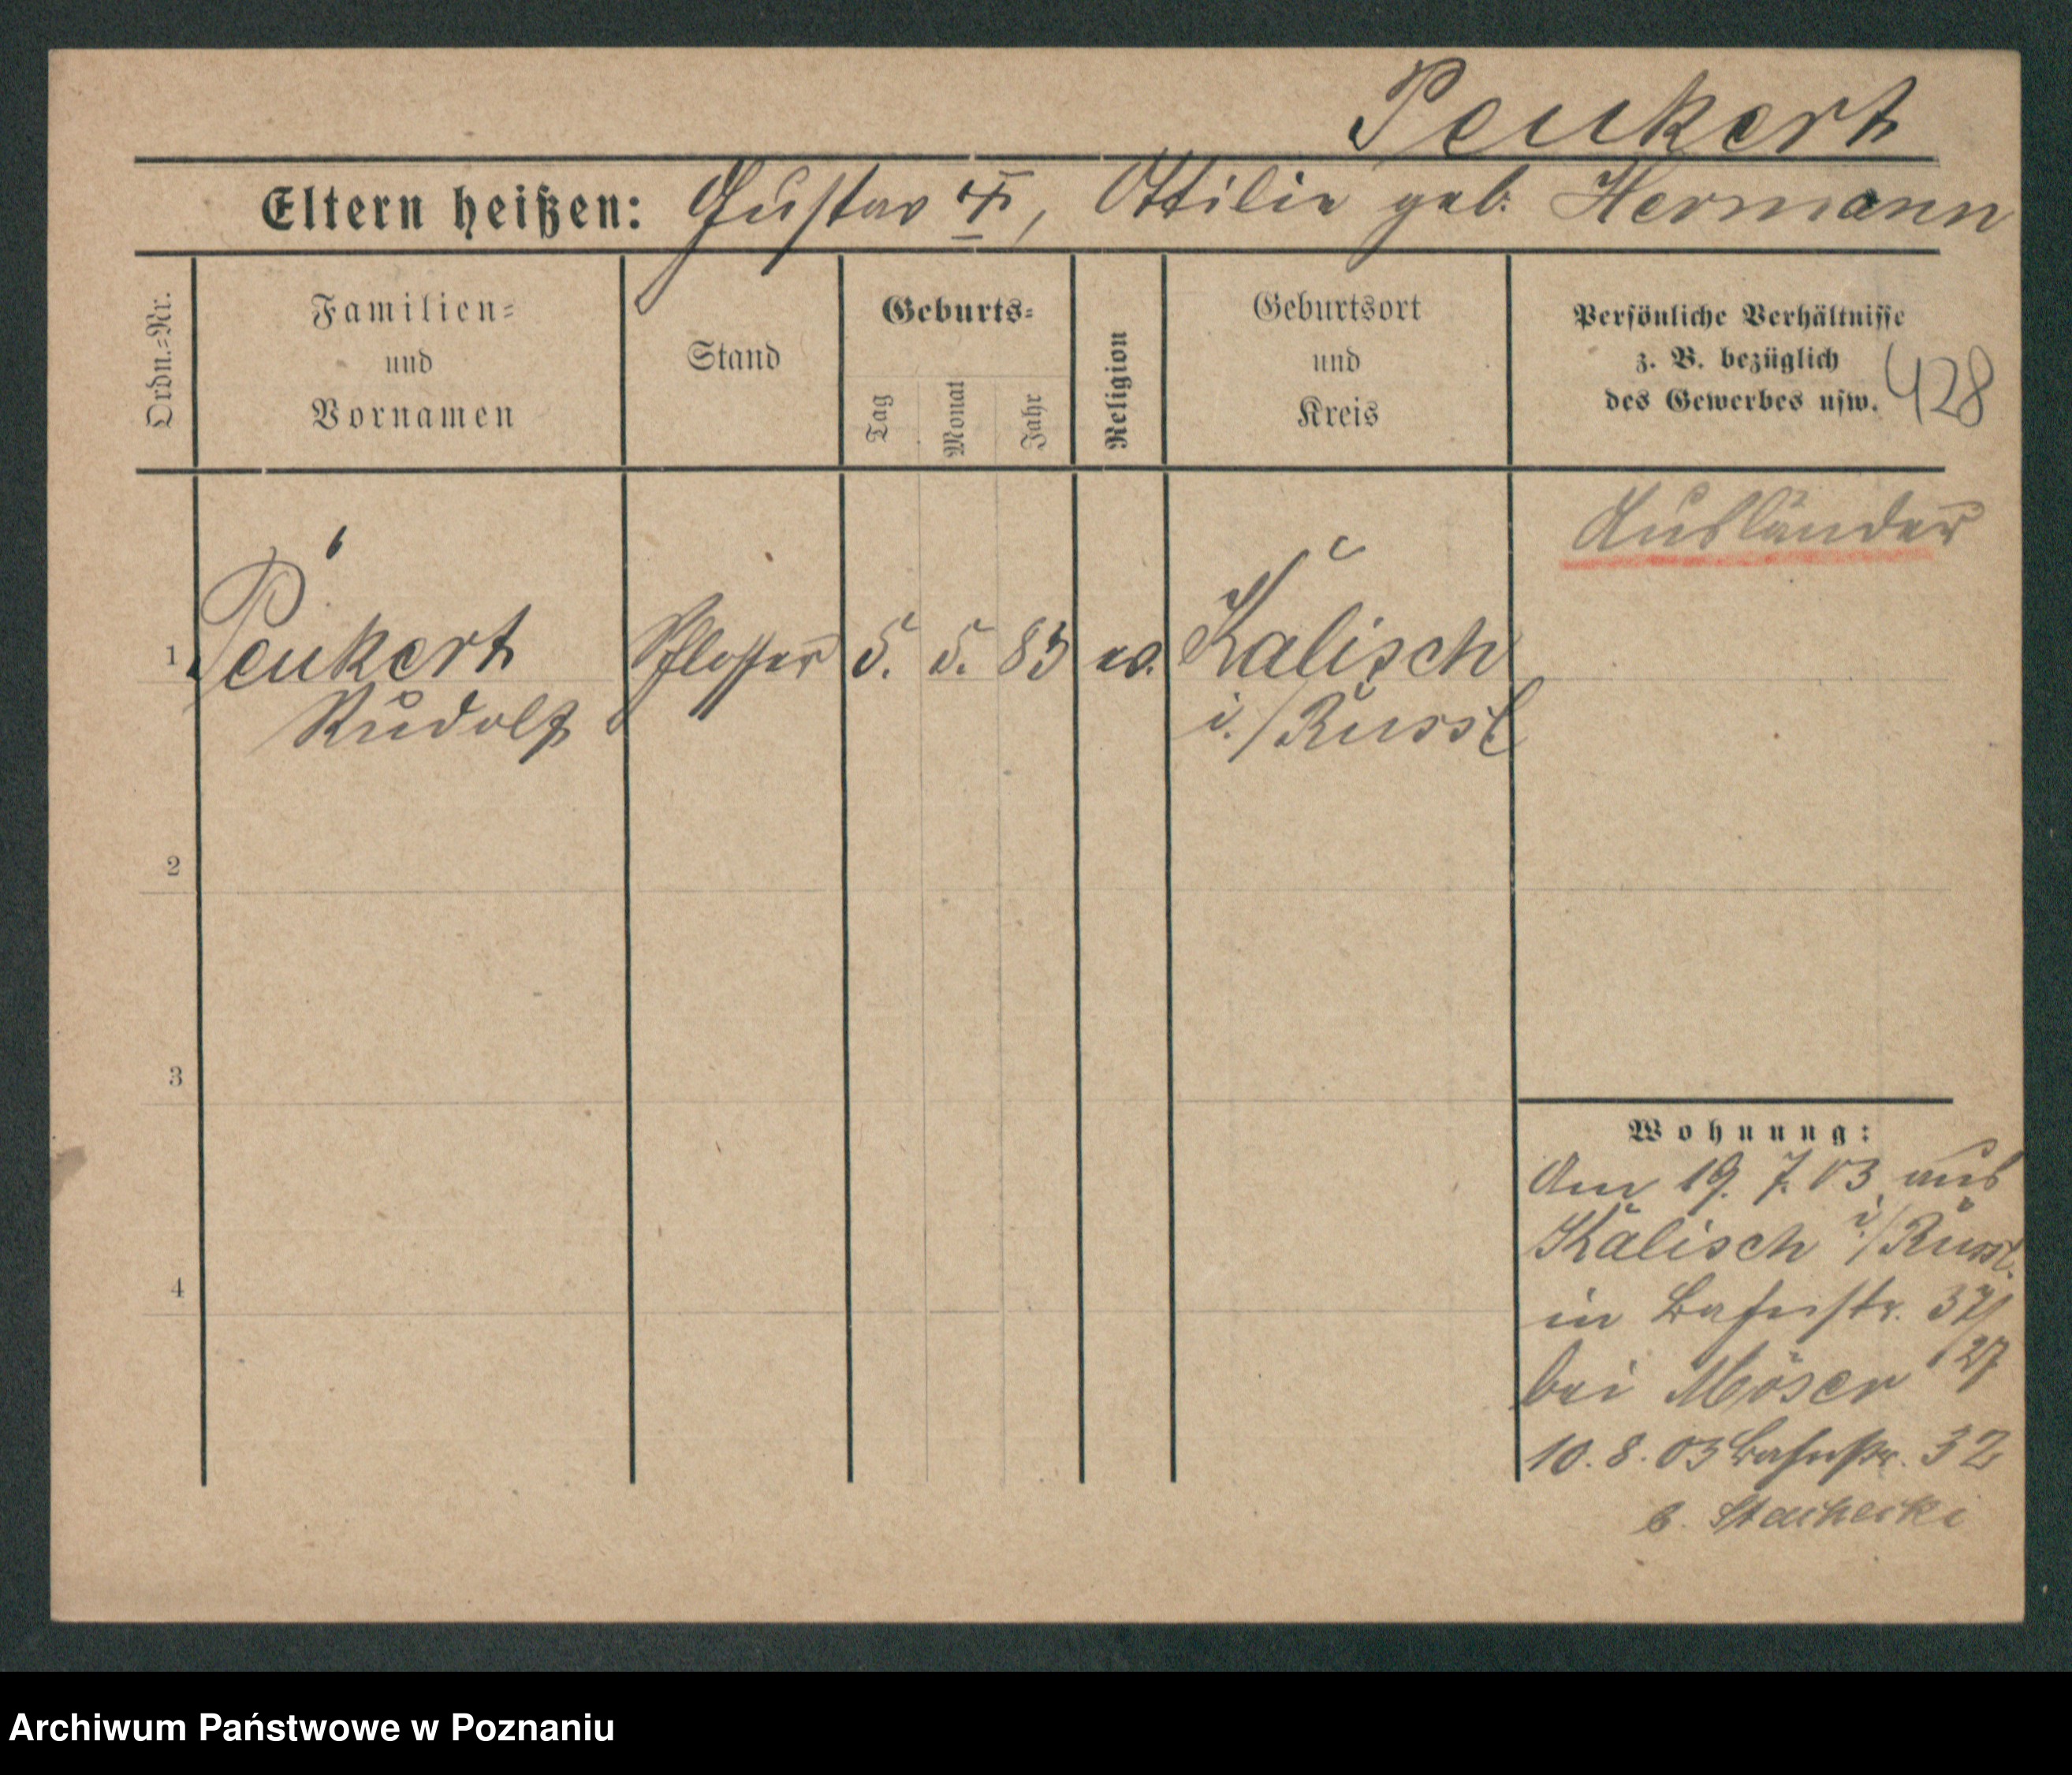 Peukert
Eltern heißen: Gustav †, Ottilie geb. Hermann
Ordn.=Nr.
Familien=
und
Vornamen
Stand
Geburts=
Tag
Monat
Jahr
Religion
Geburtsort
und
Kreis
Persönliche Verhältnisse
z. B. bezüglich
des Gewerbes usw.
428
Ausländer
1 Peukert Schlosser 5. 5. 83 ev. Kalisch
Rudolf i./Russl
2
3
4
Wohnung:
Am 19. 7. 03 aus
Kalisch i/Russl.
in Bahnstr.
bei Möser
10. 8. 03 Bahnstr. 32
b.
Archiwum Państwowe w Poznaniu